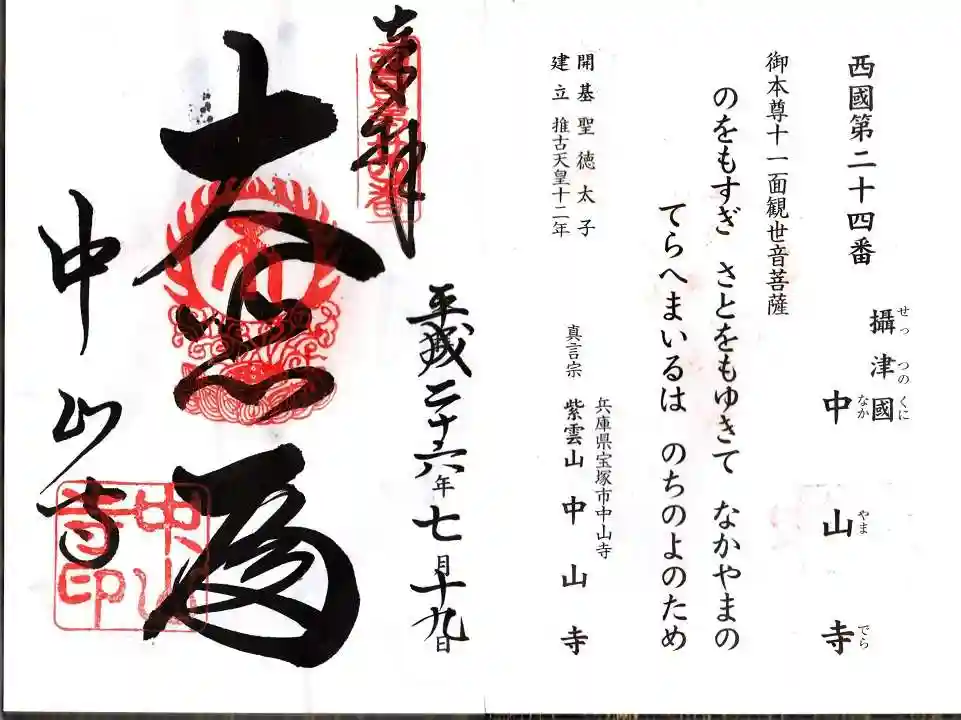 西國第二十四番
攝津國
せっ つの くに
中山寺
なか やま でら
御本尊十一面観世音菩薩
のをもすぎ さとをもゆきて なかやまの
てらへまいるは のちのよのため
開基 聖徳太子
建立 推古天皇十二年
兵庫県宝塚市中山寺
真言宗 紫雲山 中山寺
奉拝
平成二十六年七月十九日
大悲殿
中山寺
中山寺印